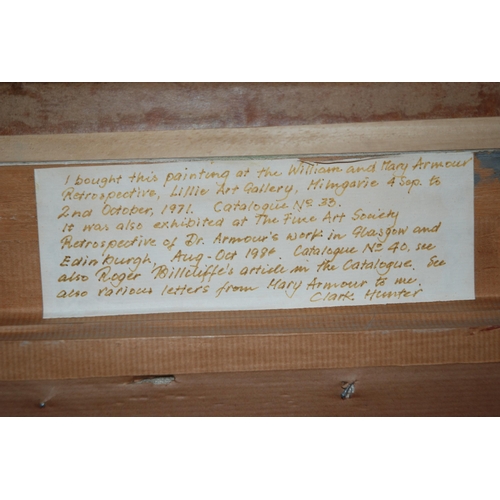 I bought this painting at the William and Mary Armour
Retrospective, Lillie Art Gallery, Milngavie 4 Sep. to
2nd October, 1971. Catalogue No. 33.
It was also exhibited at The Fine Art Society
Retrospective of Dr. Armour's work in Glasgow and
Edinburgh, Aug-Oct 1986. Catalogue No 40, see
also Roger Billcliffe's article in the Catalogue. See
also various letters from Mary Armour to me.
Clark Hunter